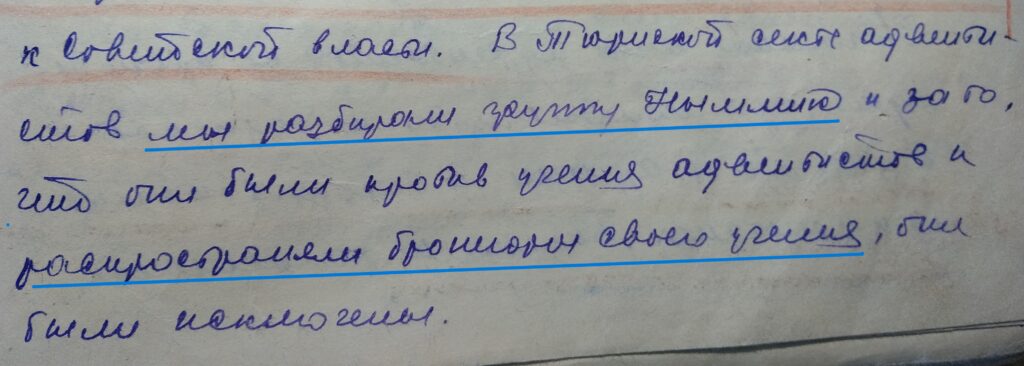 к Советской власти. В Тюриской секте адвенти-
стов мы разбирали группу Ныммика и за то,
что они были против учения адвентистов и
распространяли брошюры своего учения, они
были исключены.